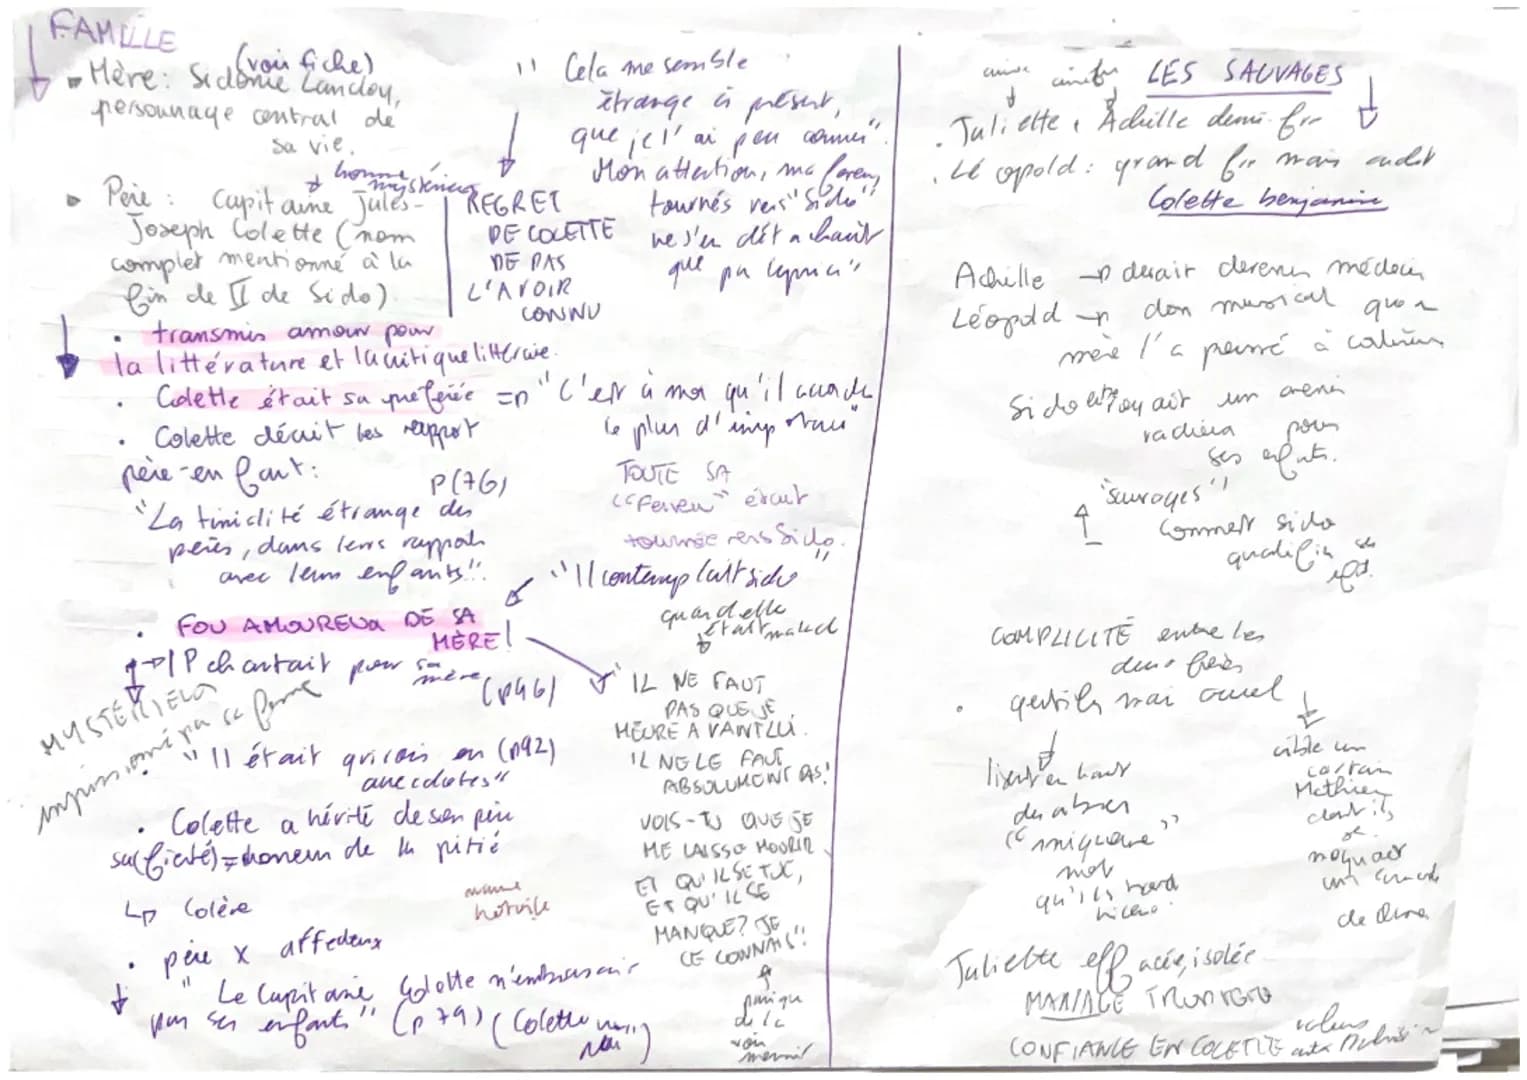 FAMILLE
(voir fiche)
Mère: Sidonie Landoy,
personnage central de
sa vie.
homme mystérieux
Père: Capitaine Jules-
Joseph Colette (nom
complet mentionné à la
fin de II de Sido)
transmis amour pour
la littérature et la critique littéraire.
Colette était sa préférée => "C'est à moi qu'il accorde
le plus d'importance"
Colette décrit les rapport
père-enfant:
P(76)
"La timidité étrange des
pères, dans leurs rapports
avec leurs enfants".
FOU AMOUREUX DE SA
MÈRE!
IP chantait pour sa mère
(p46)
MYSTERIEUX
impressionné par sa femme
"Il était gricois en (p92)
anecdotes"
Colette a hérité de son père
sa(ficité) = honneur de la pitié
Colère
maume
horvile
père x affectueux
"Le Capitaine Colette n'embrassait
pas ses enfants" (p79) (Colette
" Cela me semble
étrange à présent,
que je l'ai peu connu".
Mon attention, ma ferveur,
tournés vers "Sido"
ne s'en
que par
REGRET
DE COLETTE
DE PAS
L'AVOIR
CONNU
TOUTE SA
"Ferveur" était
tournée vers Sido.
"Il contemplait sido"
quand elle
était malade
"IL NE FAUT
PAS QUE JE
MEURE AVANT LUI.
IL NE LE FAUT
ABSOLUMENT PAS!
VOIS-TU QUE JE
ME LAISSE MOURIR
ET QU'IL SE TUE,
ET QU'IL SE
MANQUE? JE
LE CONNAIS"!
panique
de la
voir
mourir
LES SAUVAGES
Juliette, Achille demi-fr
Léopold: grand fr mais cadet
Colette benjamine
Achille -> devait devenir médecin
Léopold -> don musical que
mère l'a à
Sido un avenir
radieux pour
ses enfants.
"sauvages"
comment sido
qualifie ses
COMPLICITÉ entre les
deux frères
gentils mai cruel
lisent en haut
des arbres
mot
qu'ils
cible un
certain
Mathieu
dont ils
se
moquait
de
Juliette effacée, isolée
MARIAGE
CONFIANCE EN COLETTE